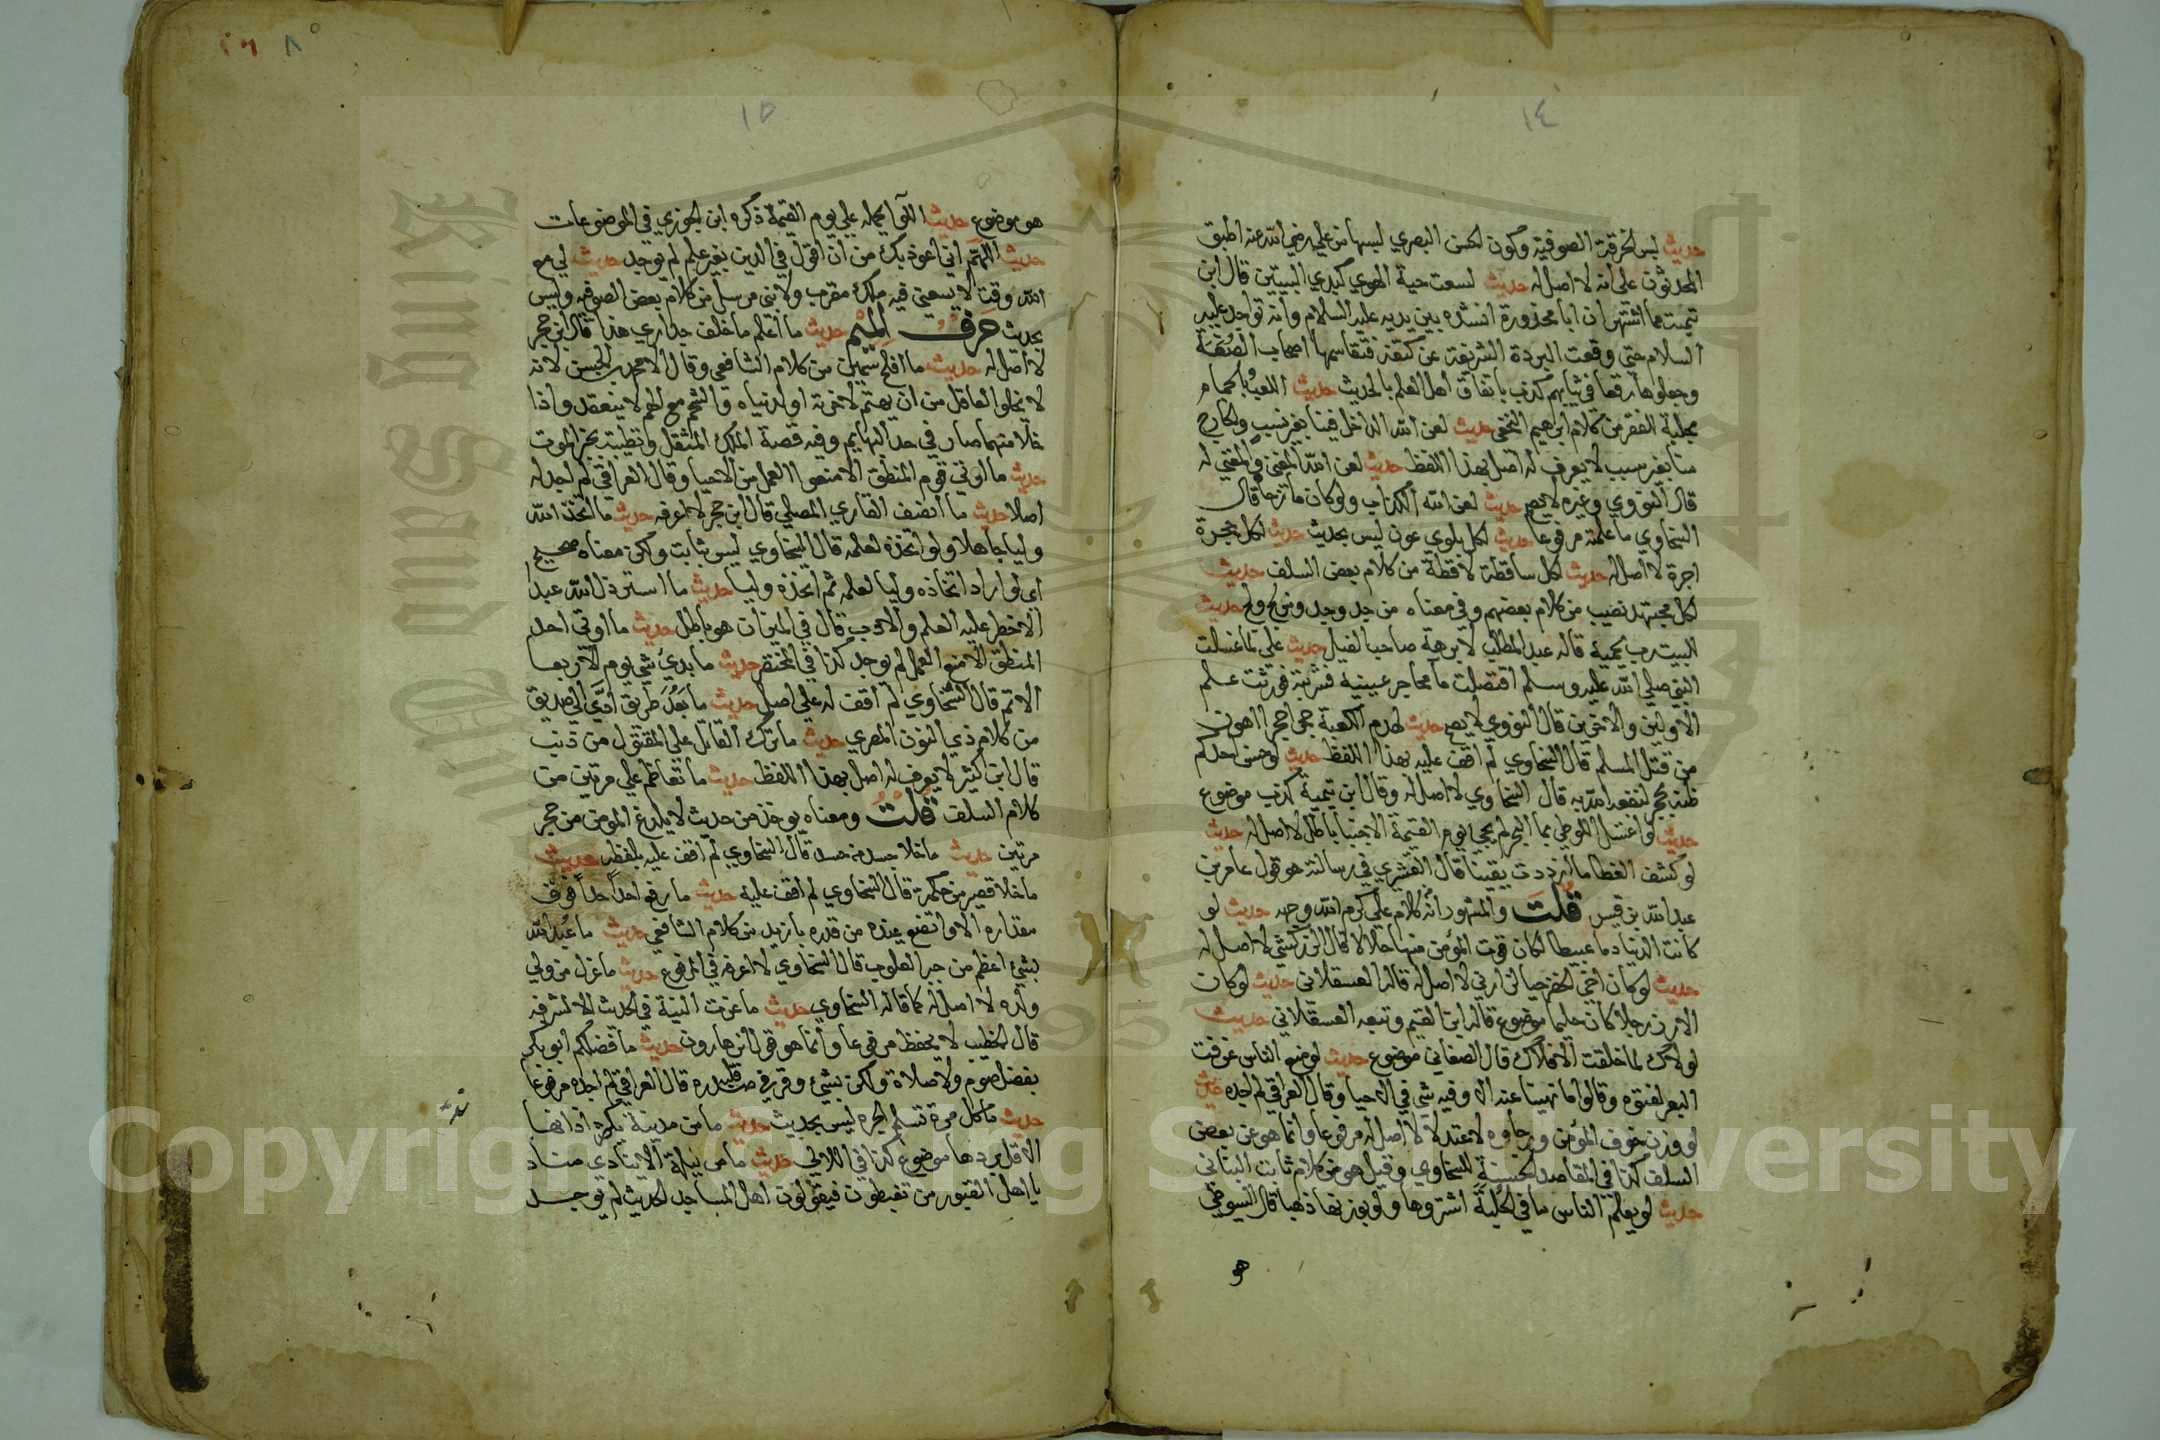 ١٤
حديث لبس الخرقة الصوفية وكون الحسن البصري لبسها من علي رضي الله عنه اطبق
المحدثون على انه لا اصل له حديث لسعت حية الهوي كبدي البيتين قال ابن
تيمية مما اشتهر ان ابا محذورة انشده بين يديه عليه السلام وانه تواجد عليه
السلام حتى وقعت البردة الشريفة عن كتفه فتقاسمها اصحاب الصفة
وجعلوها رقعا في ثيابهم كذب باتفاق اهل العلم بالحديث حديث اللعب بالحمام
مجلبة الفقر من كلام ابرهيم النخعي حديث لعن الله الداخل فينا بغير نسب والخارج
منا بغير سبب لا يعرف له اصل بهذا اللفظ حديث لعن الله المغني والمغني له
قال النووي وغيره لا يصح حديث لعن الله الكذاب ولو كان مازحا قال
السخاوي ما علمته مرفوعا حديث لكل بلوي عون ليس بحديث حديث لكل حجرة
اجرة لا اصل له حديث لكل ساقطة لاقطة من كلام بعض السلف حديث
لكل مجتهد نصيب من كلام بعضهم وفي معناه من جد وجد ومن لج ولج حديث
للبيت رب يحميه قاله عبد المطلب لابرهة صاحب الفيل حديث علي لما غسلت
النبي صلي الله عليه وسلم اقتصلت ماء محاجر عينيه فشربته فورثت علم
الاولين والاخرين قال النووي لا يصح حديث لهدم الكعبة حجرا حجرا اهون
من قتل المسلم قال السخاوي لم اقف عليه بهذا اللفظ حديث لو حسن احدكم
ظنه بحجر لنفعه الله به قال السخاوي لا اصل له وقال ابن تيمية كذب موضوع
حديث لو اغتسل اللوطي بماء البحر لم يجي يوم القيمة الا جنبا باطل لا اصل له حديث
لو كشف الغطا ما ازددت يقينا قال القشيري في رسالته هو قول عامر بن
عبد الله بن قيس قلت والمشهور انه كلام علي كرم الله وجهه حديث لو
كانت الدنيا دما عبيطا لكان قوت المؤمن منها حلالا قال الزركشي لا اصل له
حديث لو كان اخي الخضر حيا لزارني لا اصل له قاله العسقلاني حديث لو كان
الارز رجلا كان حليما موضوع قاله ابن القيم وتبعه العسقلاني حديث
لولاك لما خلقت الافلاك قال الصغاني موضوع حديث لو منع الناس عن فت
البعر لفتوه وقالوا ما نهينا عنه الا وفيه شي في الاحيا وقال العراقي لم اجده حديث
لو وزن خوف المؤمن ورجاوه لاعتدلا لا اصل له مرفوعا وانما هو عن بعض
السلف كذا في المقاصد الحسنة للسخاوي وقيل هو من كلام ثابت البناني
حديث لو يعلم الناس ما في الحلبة اشتروها ولو بوزنها ذهبا قال السيوطي
هو
١٥
هو موضوع حديث اللوا يحمله علي يوم القيمة ذكره ابن الجوزي في الموضوعات
حديث اللهم اني اعوذ بك من ان اقول في الدين بغير علم لم يوجد حديث لي مع
الله وقت لا يسعني فيه ملك مقرب ولا نبي مرسل من كلام بعض الصوفيه وليس
بحديث حرف الميم حديث ما اعلم ما خلف جداري هذا قال ابن حجر
لا اصل له حديث ما افلح سمين من كلام الشافعي وقال الا محمد بن الحسن لانه
لا يخلو العاقل من ان يهتم لاخرته او لدنياه والشحم مع الهم لا ينعقد واذا
خلا منهما صار في حد البهايم وفيه قصة الملك المثقل وتطبيبه بخبر الموت
حديث ما اوتي قوم المنطق الا منعوا العمل من الاحيا وقال العراقي لم اجد له
اصلا حديث ما انصف القاري المصلي قال ابن حجر لا اعرفه حديث ما اتخذ الله
وليا جاهلا ولو اتخذه لعلمه قال السخاوي ليس بثابت ولكن معناه صحيح
اي لو اراد اتخاذه وليا لعلمه ثم اتخذه وليا حديث ما استرذل الله عبدا
الا حظر عليه العلم والادب قال في الميزان هو باطل حديث ما اوتي احد
المنطق الا منع العمل لم يوجد كذا في المختصر حديث ما بدئ شي يوم الاربعا
الا تم قال السخاوي لم اقف له على اصل حديث ما بعد طريق ادي الي صديق
من كلام ذي النون المصري حديث ما ترك القاتل علي المقتول من ذنب
قال ابن كثير لا يعرف له اصل بهذا اللفظ حديث ما تعاظم علي مرتين من
كلام السلف قلت ومعناه يوخذ من حديث لا يلدغ المومن من جحر
مرتين حديث ما خلا جسد من حسد قال السخاوي لم اقف عليه بلفظه حديث
ما خلا قصير من حكمة قال السخاوي لم اقف عليه حديث ما رفع احد احدا فوق
مقداره الا واتضع عنده من قدره بازيد من كلام الشافعي حديث ما عبد الله
بشئ اعظم من جبر القلوب قال السخاوي لا اعرفه في المرفوع حديث ما عزل من ولي
ولده لا اصل له كما قاله السخاوي حديث ما عزت النية في الحديث الا لشرفه
قال الخطيب لا يحفظ مرفوعا وانما هو قول ابن هارون حديث ما فضلكم ابو بكر
بفضل صوم ولا صلاة ولكن بشئ وقر في صدره قال العراقي لم اجده مرفوعا
حديث ما كل مرة تسلم الجره ليس بحديث حديث ما من مدينة يكثر اذانها
الا قل بردها موضوع كذا في اللالي حديث ما من ليلة الا ينادي مناد
يا اهل القبور من تغبطون فيقولون اهل المساجد الحديث لم يوجد